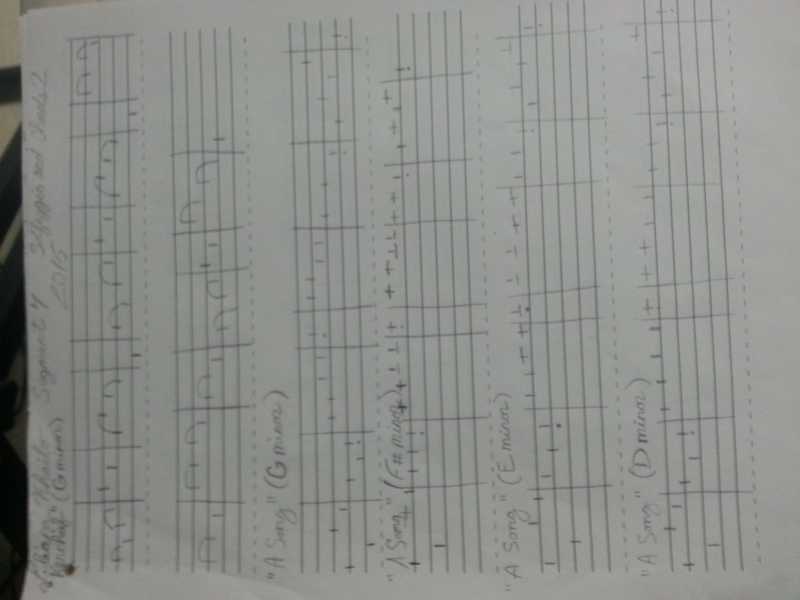 Segment 4 Solfeggio and Scales 2
2015
(G minor)
"A Song" (G minor)
"A Song" (F# minor)
"A Song" (E minor)
"A Song" (D minor)